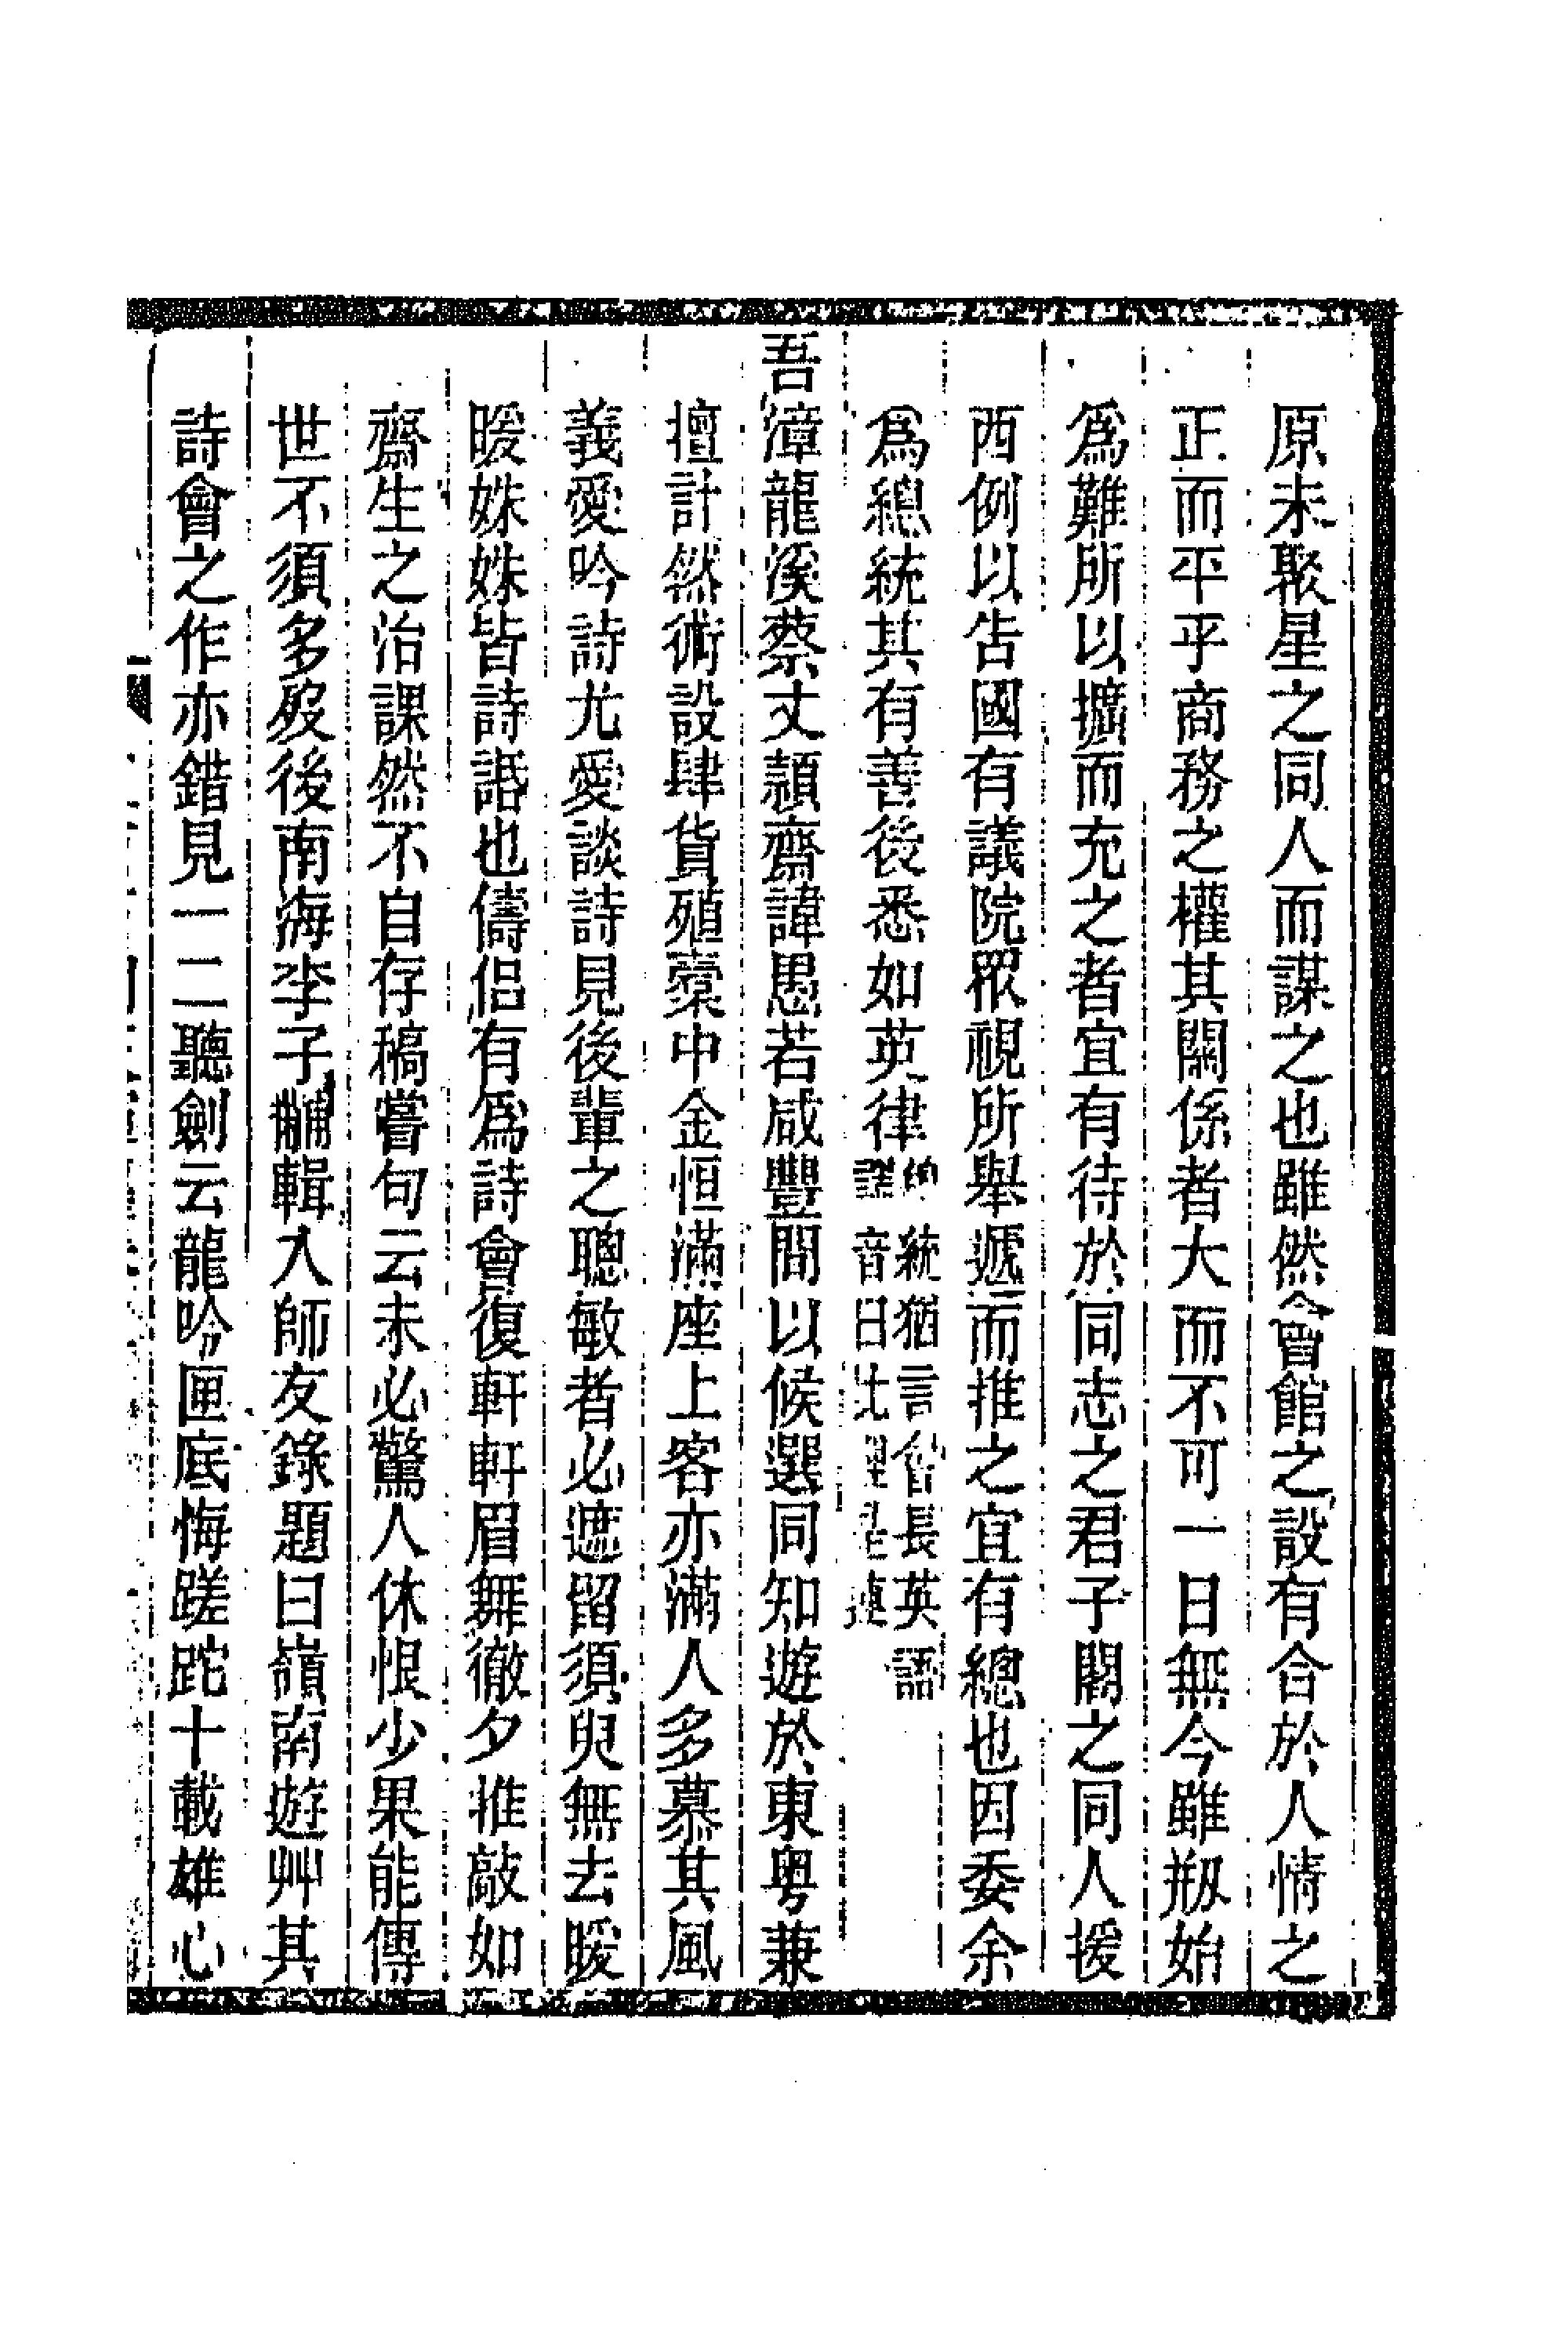 原未聚星之同人而謀之也雖然會館之設有合於人情之
正而平乎商務之權其關係者大而不可一日無今雖剏始
爲難所以擴而充之者宜有待於同志之君子閣之同人援
西例以告國有議院眾視所舉遞而推之宜有總也因委余
爲總統其有善後悉如英律總統猶言會長英語
譯音曰比理是
吾漳龍溪蔡丈頴齋諱愚若咸豐間以候選同知遊於東粤兼
擅計然術設肆貨殖橐中金恒滿座上客亦滿人多慕其風
義愛吟詩尤愛談詩見後輩之聰敏者必遮留須臾無去暖
暖姝姝皆詩話也儔侶有爲詩會復軒軒眉舞徹夕推敲如
齋生之治課然不自存稿嘗句云未必驚人休恨少果能傳
世不須多殁後南海李子黼輯入師友錄題曰嶺南遊艸其
詩會之作亦錯見一二聽劍云龍吟匣底悔蹉跎十載雄心